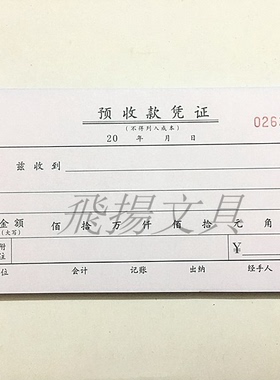 预收款凭证
(不得列入成本)
026
20 年 月 日
兹收到
飛揚文具
金额 佰 拾 万 仟 佰 拾 元 角
(大写)
附 ¥
注
位 会计 记账 出纳 经手人